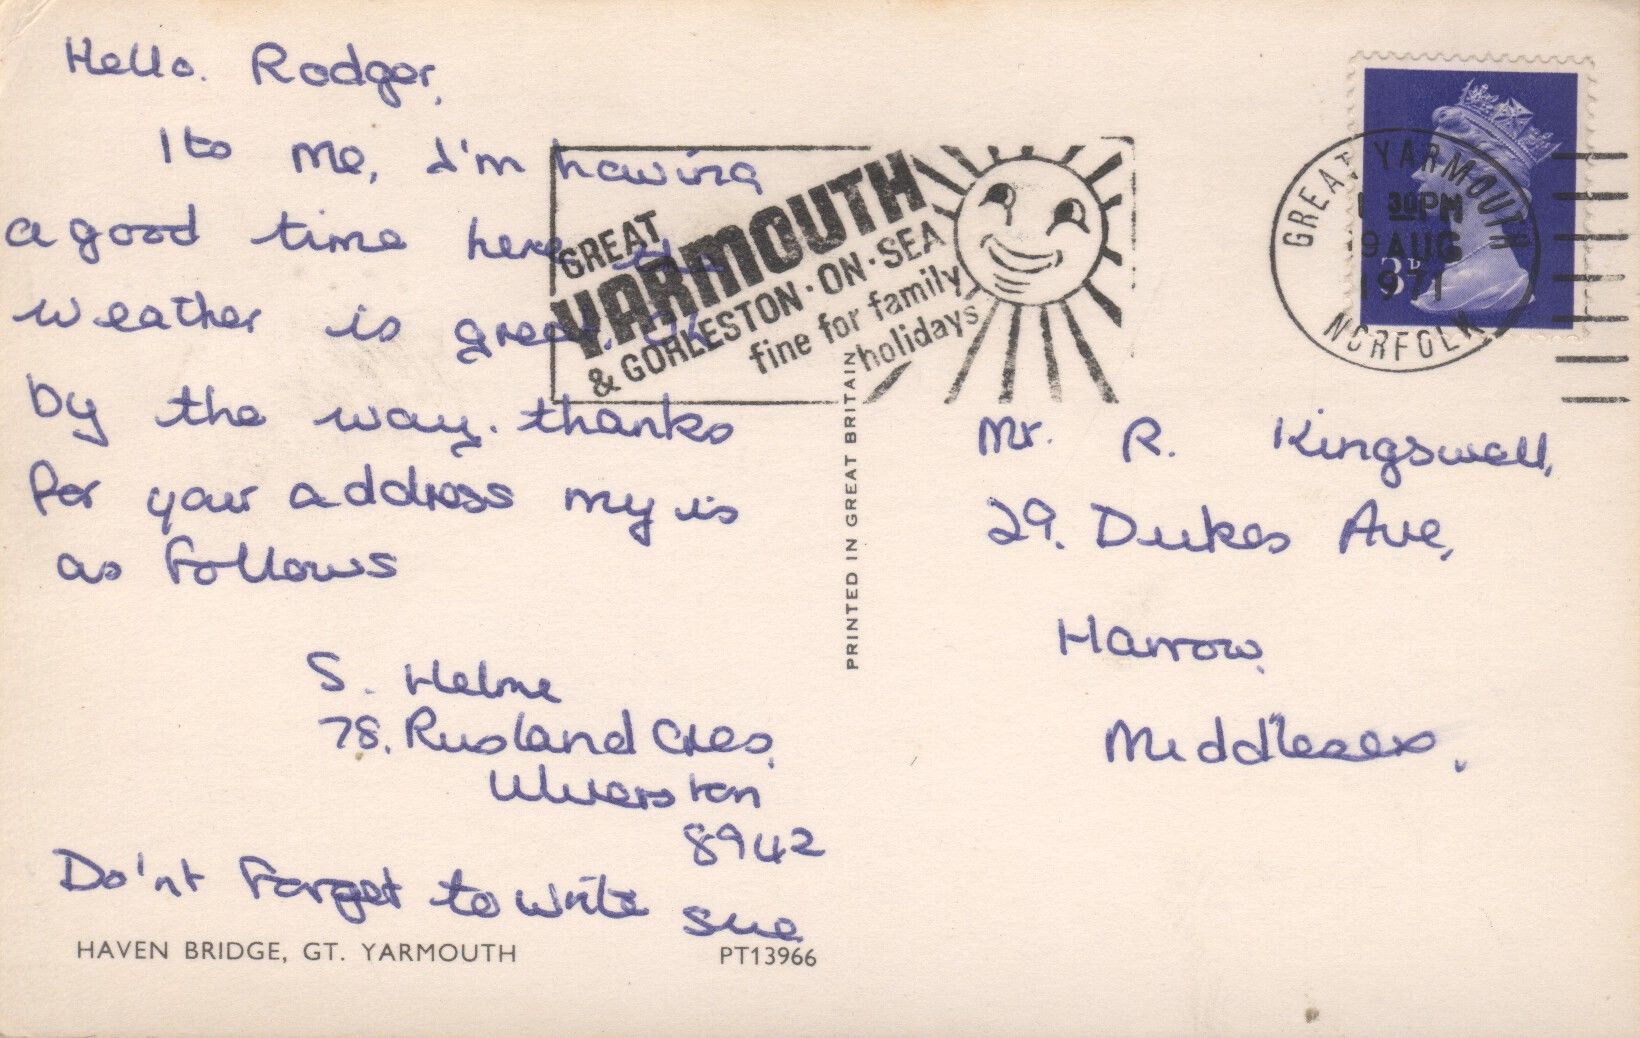 Hello. Rodger,
Its me, I'm having
a good time here the
weather is great. Oh
by the way. thanks
for your address my is
as follows
S. Helme
78, Rusland Cres,
Ulverston
8942
Do'nt forget to write
Sue
HAVEN BRIDGE, GT. YARMOUTH
PT13966
PRINTED IN GREAT BRITAIN
GREAT
YARMOUTH
& GORLESTON·ON·SEA
fine for family
holidays
GREAT YARMOUTH
1 30PM
9 AUG
1971
NORFOLK
3P
Mr. R. Kingswell,
29. Dukes Ave,
Harrow,
Middlesex.